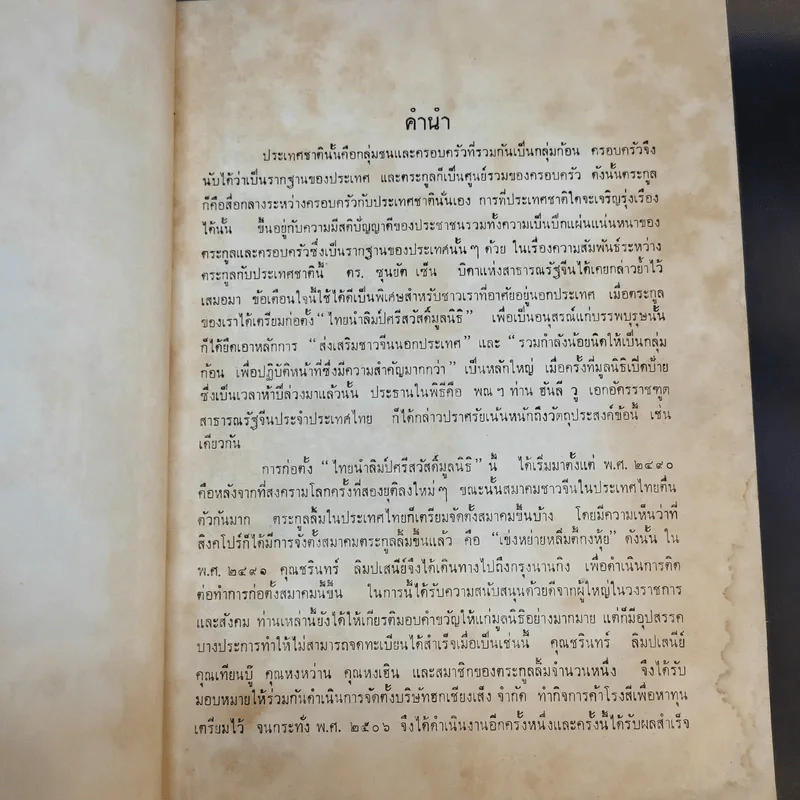 คำนำ
ประเทศชาตินั้นคือกลุ่มชนและครอบครัวที่รวมกันเป็นกลุ่มก้อน ครอบครัวจึง
นับได้ว่าเป็นรากฐานของประเทศ และตระกูลก็เป็นศูนย์รวมของครอบครัว ดังนั้นตระกูล
ก็คือสื่อกลางระหว่างครอบครัวกับประเทศชาตินั่นเอง การที่ประเทศชาติใดจะเจริญรุ่งเรือง
ได้นั้น ขึ้นอยู่กับความมีสติปัญญาดีของประชาชนรวมทั้งความเป็นปึกแผ่นแน่นหนาของ
ตระกูลและครอบครัวซึ่งเป็นรากฐานของประเทศนั้น ๆ ด้วย ในเรื่องความสัมพันธ์ระหว่าง
ตระกูลกับประเทศชาตินี้ ดร. ซุนยัด เซ็น บิดาแห่งสาธารณรัฐจีนได้เคยกล่าวย้ำไว้
เสมอมา ข้อเตือนใจนี้ใช้ได้ดีเป็นพิเศษสำหรับชาวเราที่อาศัยอยู่นอกประเทศ เมื่อตระกูล
ของเราได้เตรียมก่อตั้ง “ไทยนำลิมป์ศรีสวัสดิ์มูลนิธิ” เพื่อเป็นอนุสรณ์แก่บรรพบุรุษนั้น
ก็ได้ยึดเอาหลักการ “ส่งเสริมชาวจีนนอกประเทศ” และ “รวมกำลังน้อยนิดให้เป็นกลุ่ม
ก้อน เพื่อปฏิบัติหน้าที่ซึ่งมีความสำคัญมากกว่า” เป็นหลักใหญ่ เมื่อครั้งที่มูลนิธิเปิดป้าย
ซึ่งเป็นเวลาห้าปีล่วงมาแล้วนั้น ประธานในพิธีคือ พณ ฯ ท่าน ฮันลี วู เอกอัครราชฑูต
สาธารณรัฐจีนประจำประเทศไทย ก็ได้กล่าวปราศรัยเน้นหนักถึงวัตถุประสงค์ข้อนี้ เช่น
เดียวกัน
การก่อตั้ง “ไทยนำลิมป์ศรีสวัสดิ์มูลนิธิ” นี้ ได้เริ่มมาตั้งแต่ พ.ศ. ๒๔๙๐
คือหลังจากที่สงครามโลกครั้งที่สองยุติลงใหม่ ๆ ขณะนั้นสมาคมชาวจีนในประเทศไทยตื่น
ตัวกันมาก ตระกูลลิ้มในประเทศไทยก็เตรียมจัดตั้งสมาคมขึ้นบ้าง โดยมีความเห็นว่าที่
สิงคโปร์ก็ได้มีการจัดตั้งสมาคมตระกูลลิ้มขึ้นแล้ว คือ “เข่งหย่ายหลิ่มตี้กงหุ้ย” ดังนั้น ใน
พ.ศ. ๒๔๙๑ คุณชรินทร์ ลิมปเสนีย์จึงได้เดินทางไปถึงกรุงนานกิง เพื่อดำเนินการติด
ต่อทำการก่อตั้งสมาคมนี้ขึ้น ในการนี้ได้รับความสนับสนุนด้วยดีจากผู้ใหญ่ในวงราชการ
และสังคม ท่านเหล่านี้ยังได้ให้เกียรติมอบคำขวัญให้แก่มูลนิธิอย่างมากมาย แต่ก็มีอุปสรรค
บางประการทำให้ไม่สามารถจดทะเบียนได้สำเร็จเมื่อเป็นเช่นนี้ คุณชรินทร์ ลิมปเสนีย์
คุณเทียนบู๊ คุณหงหว่าน คุณหงเฮิน และสมาชิกของตระกูลลิ้มจำนวนหนึ่ง จึงได้รับ
มอบหมายให้ร่วมกันดำเนินการจัดตั้งบริษัทฮกเซียงเส็ง จำกัด ทำกิจการค้าโรงสีเพื่อหาทุน
เตรียมไว้ จนกระทั่ง พ.ศ. ๒๕๐๖ จึงได้ดำเนินงานอีกครั้งหนึ่งและครั้งนี้ได้รับผลสำเร็จ